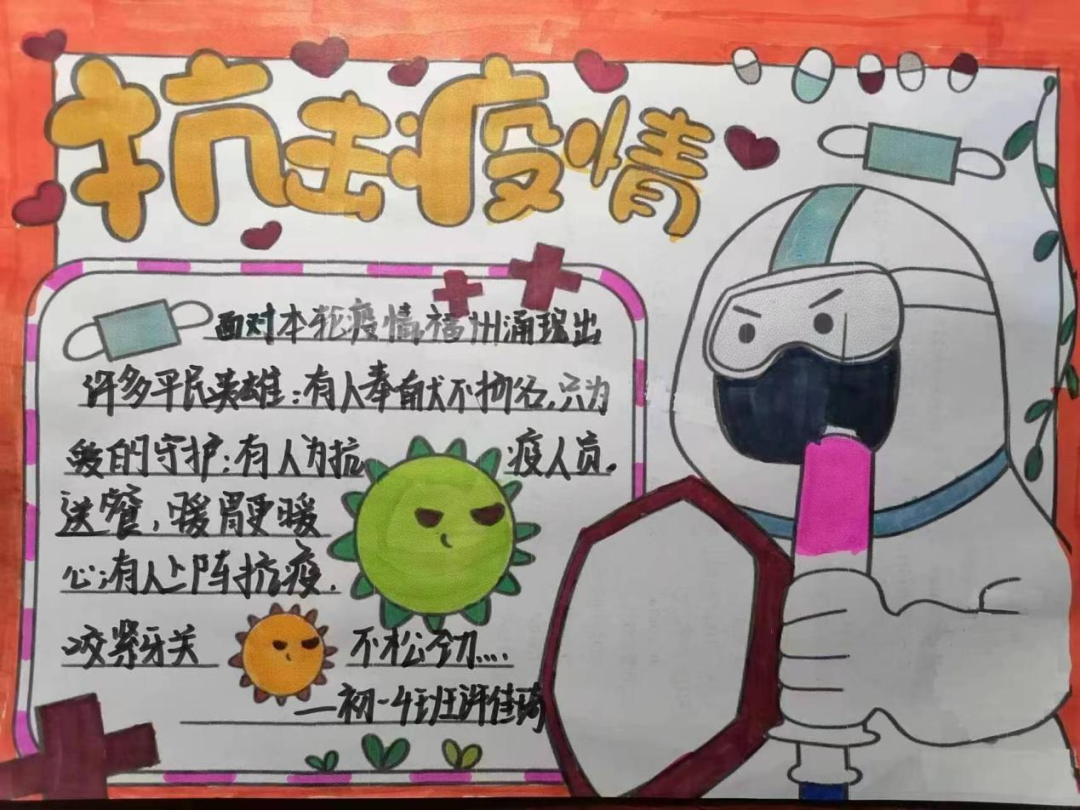 抗击疫情
面对本轮疫情,福州涌现出
许多平民英雄:有人奉献不挪名,只为
爱的守护;有人为抗疫人员
送餐,暖胃更暖
心;有人上阵抗疫,
咬紧牙关 不松今力....
—初一4班许佳琦